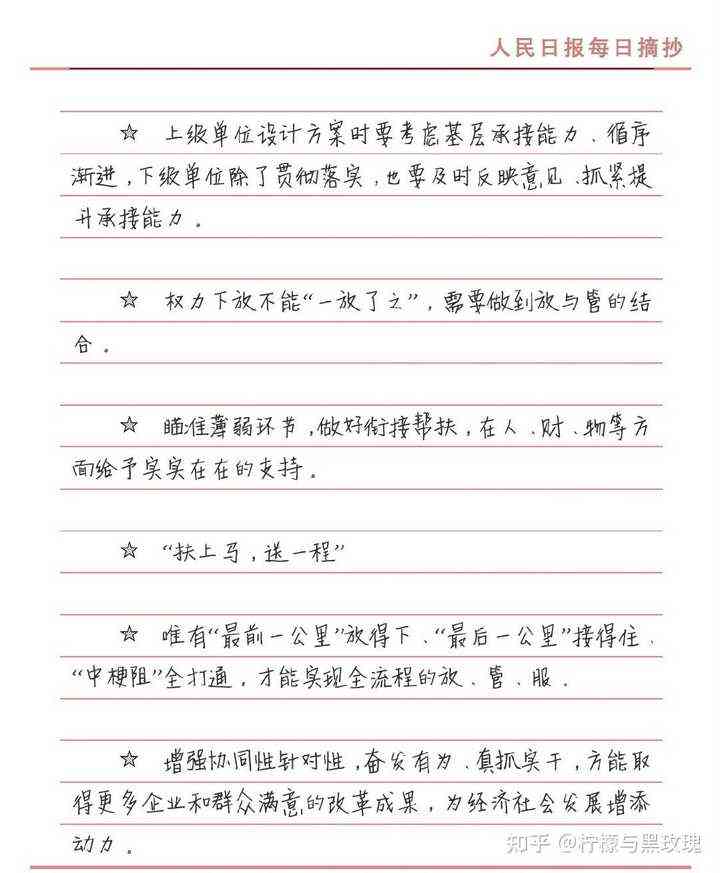 人民日报每日摘抄
☆ 上级单位设计方案时要考虑基层承接能力、循序
渐进，下级单位除了贯彻落实，也要及时反映意见、抓紧提
升承接能力。
☆ 权力下放不能“一放了之”，需要做到放与管的结
合。
☆ 瞄准薄弱环节，做好衔接帮扶，在人、财、物等方
面给予实实在在的支持。
☆ “扶上马，送一程”
☆ 唯有“最前一公里”放得下、“最后一公里”接得住、
“中梗阻”全打通，才能实现全流程的放、管、服．
☆ 增强协同性针对性，奋发有为、真抓实干，方能取
得更多企业和群众满意的改革成果，为经济社会发展增添
动力。
知乎 @柠檬与黑玫瑰